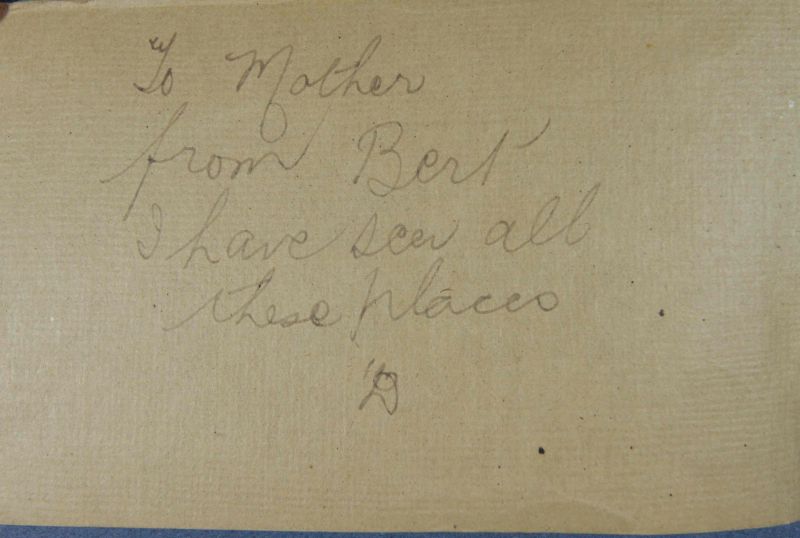 To Mother
from Bert
I have seen all
these places